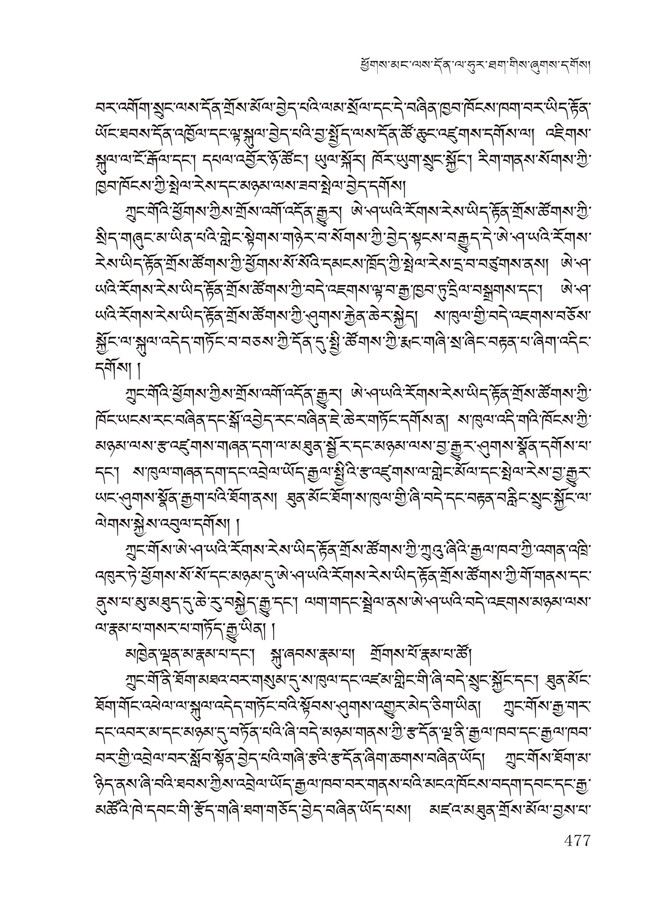 ཕྱོགས་མང་ལས་དོན་ལ་ཧུར་ཐག་གིས་ཞུགས་དགོས།
བར་འགོག་སྲུང་ལས་དོན་གྲོས་མོལ་བྱེད་པའི་ལམ་སྲོལ་དང་དེ་བཞིན་ཁྱབ་ཁོངས་ཁག་བར་ཡིད་རྟོན་
ཡོང་ཐབས་དོན་འཁྱོལ་དང་ལྟ་སྐུལ་བྱེད་པའི་བྱ་སྤྱོད་ལས་དོན་ཚོ་ཆུང་འཛུགས་དགོས་ལ། འཇིགས་
སྐུལ་ལ་ངོ་རྒོལ་དང་། དཔལ་འབྱོར་ཉོ་ཚོང་། ཡུལ་སྐོར། ཁོར་ཡུག་སྲུང་སྐྱོང་། རིག་གནས་སོགས་ཀྱི་
ཁྱབ་ཁོངས་ཀྱི་སྤེལ་རེས་དང་མཉམ་ལས་ཟབ་སྤེལ་བྱེད་དགོས།
ཀྲུང་གོའི་ཕྱོགས་ཀྱིས་གྲོས་འགོ་འདོན་རྒྱུར། ཨེ་ཤ་ཡའི་རོགས་རེས་ཡིད་རྟོན་གྲོས་ཚོགས་ཀྱི་
སྲིད་གཞུང་མ་ཡིན་པའི་གླེང་སྟེགས་གཉེར་བ་སོགས་ཀྱི་བྱེད་སྟངས་བརྒྱུད་དེ་ཨེ་ཤ་ཡའི་རོགས་
རེས་ཡིད་རྟོན་གྲོས་ཚོགས་ཀྱི་ཕྱོགས་སོ་སོའི་དམངས་ཁྲོད་ཀྱི་སྤེལ་རེས་དྲ་བ་བཙུགས་ནས། ཨེ་ཤ་
ཡའི་རོགས་རེས་ཡིད་རྟོན་གྲོས་ཚོགས་ཀྱི་བདེ་འཇགས་ལྟ་བ་རྒྱ་ཁྱབ་ཏུ་དྲིལ་བསྒྲགས་དང་། ཨེ་ཤ་
ཡའི་རོགས་རེས་ཡིད་རྟོན་གྲོས་ཚོགས་ཀྱི་ཤུགས་རྐྱེན་ཆེར་སྐྱེད། ས་ཁུལ་གྱི་བདེ་འཇགས་བཅོས་
སྐྱོང་ལ་སྐུལ་འདེད་གཏོང་བ་བཅས་ཀྱི་དོན་དུ་སྤྱི་ཚོགས་ཀྱི་རྨང་གཞི་སྲ་ཞིང་བརྟན་པ་ཞིག་འདིང་
དགོས། །
ཀྲུང་གོའི་ཕྱོགས་ཀྱིས་གྲོས་འགོ་འདོན་རྒྱུར། ཨེ་ཤ་ཡའི་རོགས་རེས་ཡིད་རྟོན་གྲོས་ཚོགས་ཀྱི་
ཁོང་ཡངས་རང་བཞིན་དང་སྒོ་འབྱེད་རང་བཞིན་ཇེ་ཆེར་གཏོང་དགོས་ན། ས་ཁུལ་འདི་གའི་ཁོངས་ཀྱི་
མཉམ་ལས་རྩ་འཛུགས་གཞན་དག་ལ་མཐུན་སྦྱོར་དང་མཉམ་ལས་བྱ་རྒྱུར་ཤུགས་སྣོན་དགོས་པ་
དང་། ས་ཁུལ་གཞན་དག་དང་འབྲེལ་ཡོད་རྒྱལ་སྤྱིའི་རྩ་འཛུགས་ལ་གླེང་མོལ་དང་སྤེལ་རེས་བྱ་རྒྱུར་
ཡང་ཤུགས་སྣོན་རྒྱག་པའི་ཐོག་ནས། ཐུན་མོང་ཐོག་ས་ཁུལ་གྱི་ཞི་བདེ་དང་བརྟན་བརླིང་སྲུང་སྐྱོང་ལ་
ལེགས་སྐྱེས་འབུལ་དགོས། །
ཀྲུང་གོས་ཨེ་ཤ་ཡའི་རོགས་རེས་ཡིད་རྟོན་གྲོས་ཚོགས་ཀྱི་ཀྲུའུ་ཞིའི་རྒྱལ་ཁབ་ཀྱི་འགན་འཁྲི་
འཁུར་ཏེ་ཕྱོགས་སོ་སོ་དང་མཉམ་དུ་ཨེ་ཤ་ཡའི་རོགས་རེས་ཡིད་རྟོན་གྲོས་ཚོགས་ཀྱི་གོ་གནས་དང་
ནུས་པ་མུ་མཐུད་དུ་ཆེ་རུ་བསྐྱེད་རྒྱུ་དང་། ལག་གདང་སྦྲེལ་ནས་ཨེ་ཤ་ཡའི་བདེ་འཇགས་མཉམ་ལས་
ལ་རྣམ་པ་གསར་པ་གཏོད་རྒྱུ་ཡིན། །
མཁྱེན་ལྡན་མ་རྣམ་པ་དང་། སྐུ་ཞབས་རྣམ་པ། གྲོགས་པོ་རྣམ་པ་ཚོ།
ཀྲུང་གོ་ནི་ཐོག་མཐའ་བར་གསུམ་དུ་ས་ཁུལ་དང་འཛམ་གླིང་གི་ཞི་བདེ་སྲུང་སྐྱོང་དང་། ཐུན་མོང་
ཐོག་གོང་འཕེལ་ལ་སྐུལ་འདེད་གཏོང་བའི་སྟོབས་ཤུགས་འགྱུར་མེད་ཅིག་ཡིན། ཀྲུང་གོས་རྒྱ་གར་
དང་འབར་མ་དང་མཉམ་དུ་བཏོན་པའི་ཞི་བདེ་མཉམ་གནས་ཀྱི་རྩ་དོན་ལྔ་ནི་རྒྱལ་ཁབ་དང་རྒྱལ་ཁབ་
བར་གྱི་འབྲེལ་བར་སློབ་སྟོན་བྱེད་པའི་གཞི་རྩའི་རྩ་དོན་ཞིག་ཆགས་བཞིན་ཡོད། ཀྲུང་གོས་ཐོག་མ་
ཉིད་ནས་ཞི་བའི་ཐབས་ཀྱིས་འབྲེལ་ཡོད་རྒྱལ་ཁབ་བར་གནས་པའི་མངའ་ཁོངས་བདག་དབང་དང་རྒྱ་
མཚོའི་ཁེ་དབང་གི་རྩོད་གཞི་ཐག་གཅོད་བྱེད་བཞིན་ཡོད་པས། མཛའ་མཐུན་གྲོས་མོལ་བྱས་པ་
477